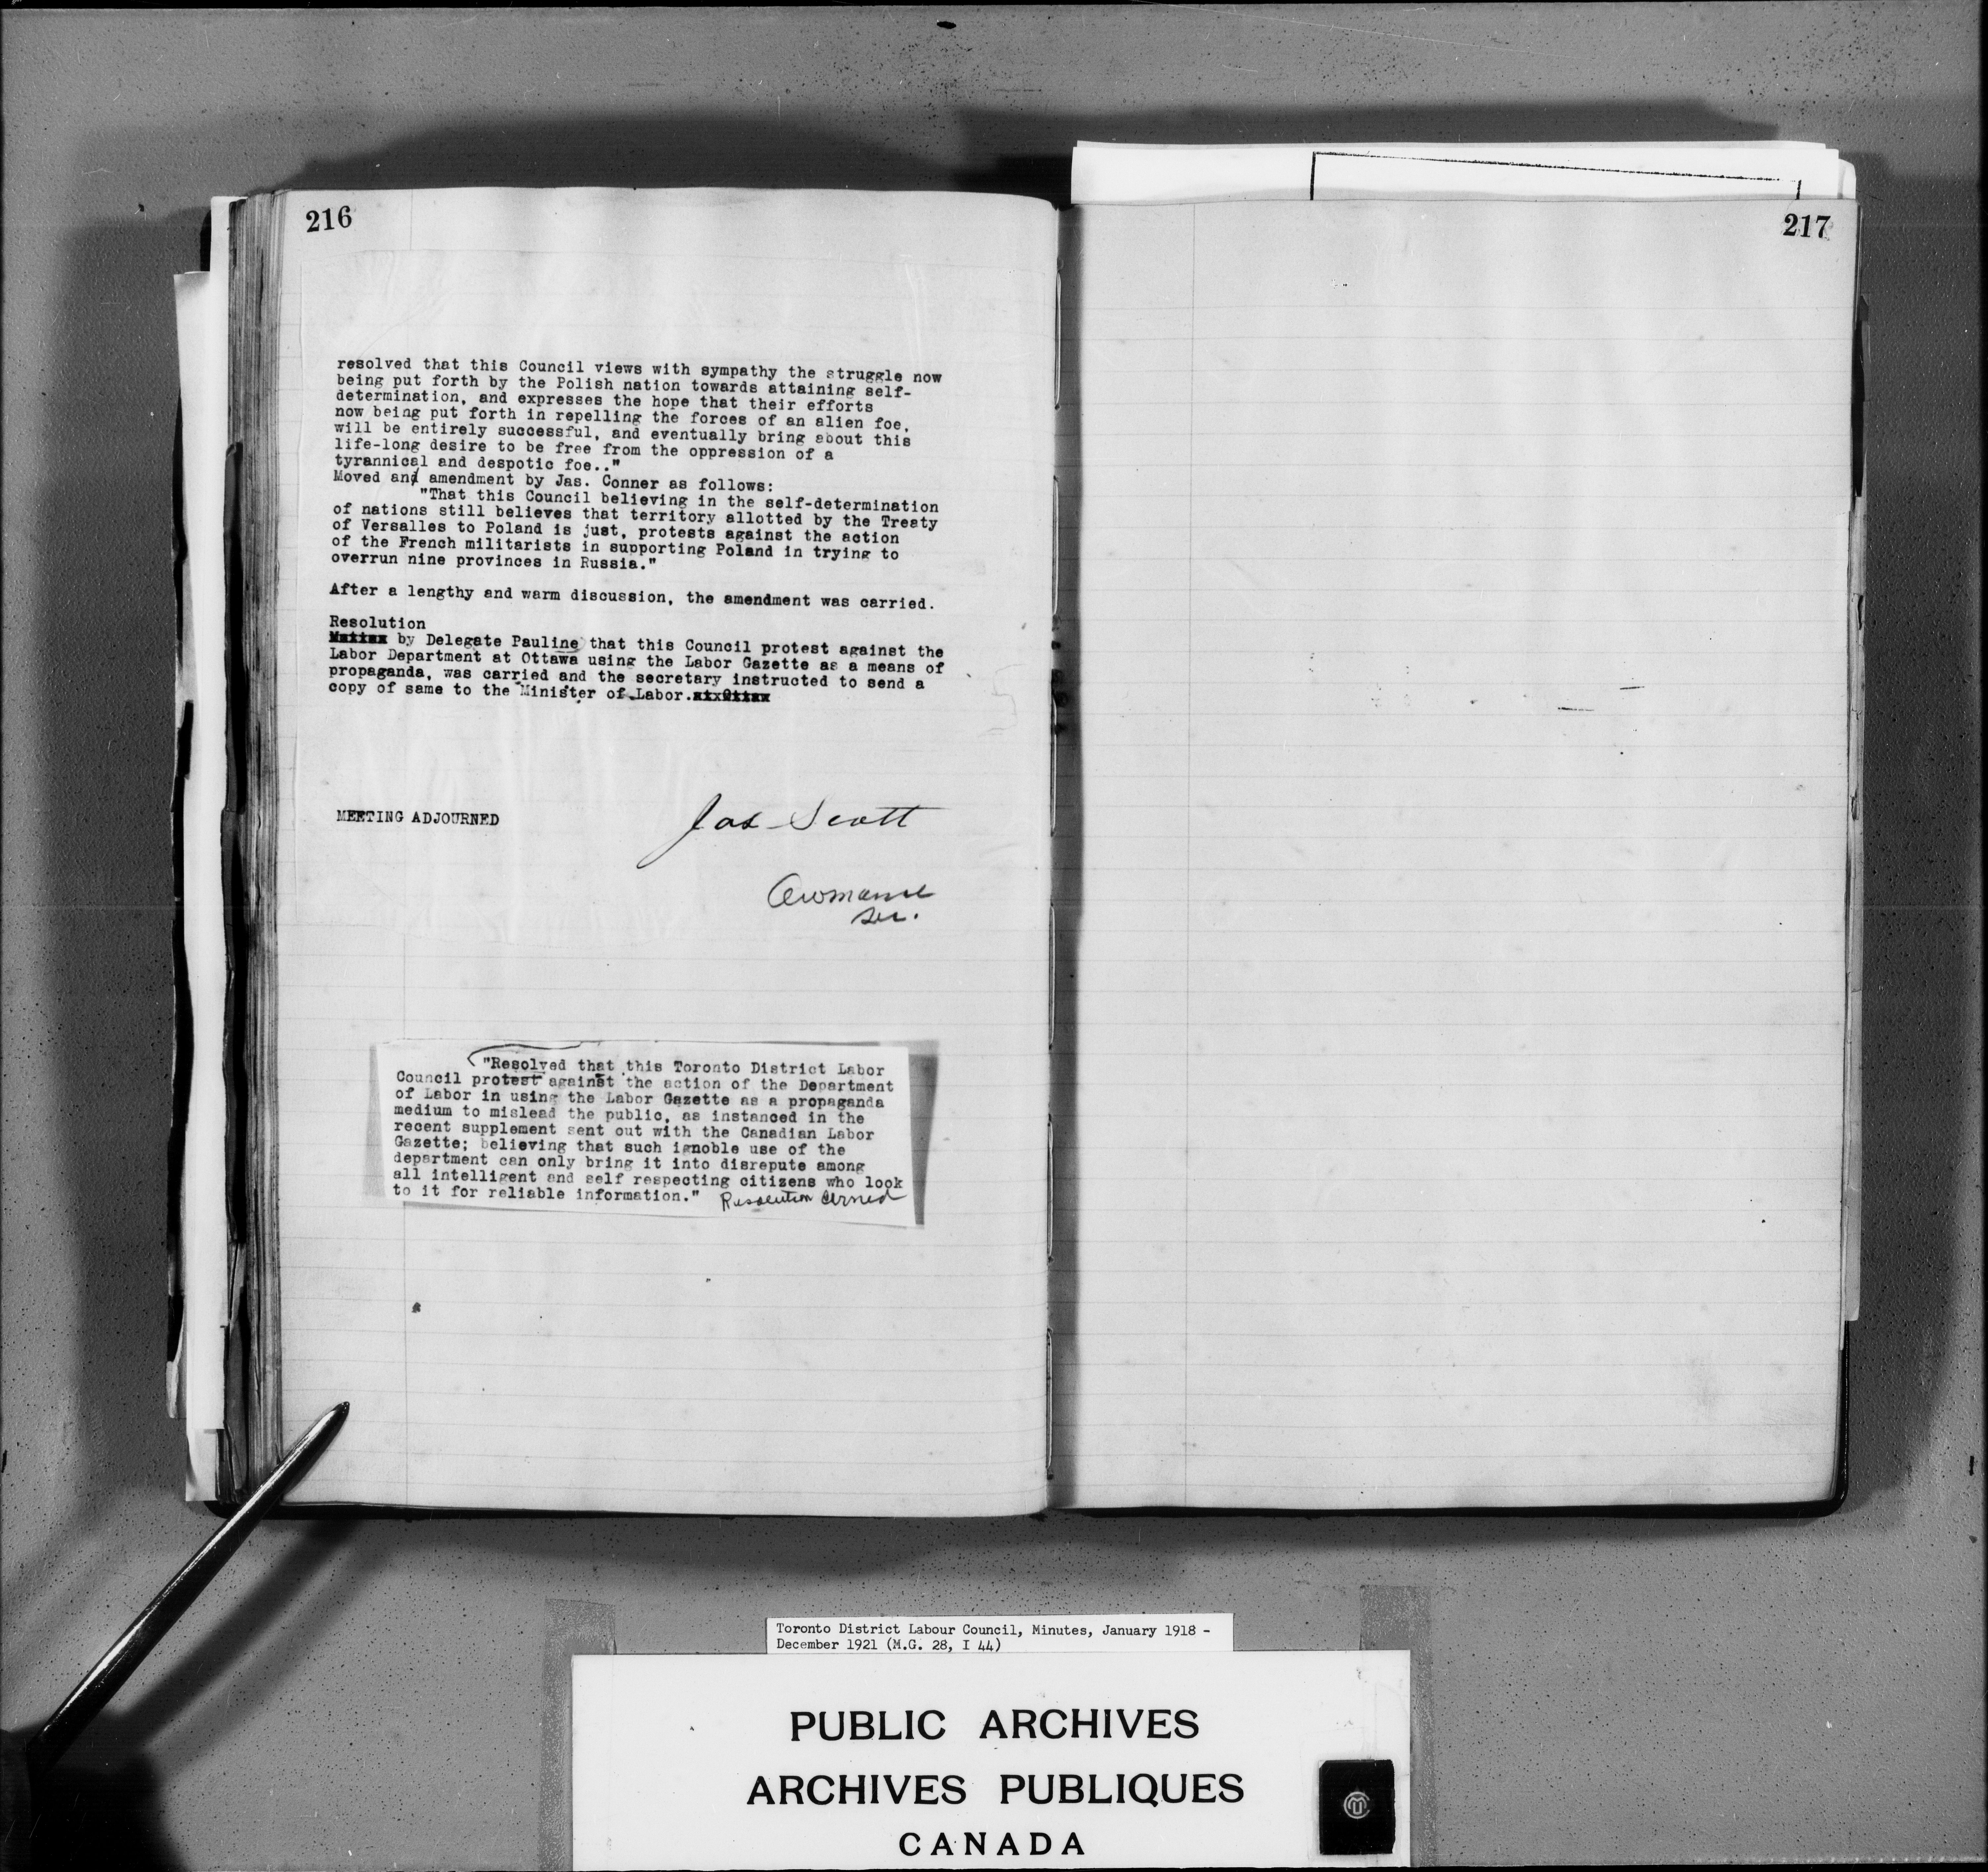 216
resolved that this Council views with sympathy the struggle now
being put forth by the Polish nation towards attaining self-
determination, and expresses the hope that their efforts
now being put forth in repelling the forces of an alien foe,
will be entirely successful, and eventually bring about this
life-long desire to be free from the oppression of a
tyrannical and despotic foe.."
Moved and amendment by Jas. Conner as follows:
"That this Council believing in the self-determination
of nations still believes that territory allotted by the Treaty
of Versalles to Poland is just, protests against the action
of the French militarists in supporting Poland in trying to
overrun nine provinces in Russia."
After a lengthy and warm discussion, the amendment was carried.
Resolution
by Delegate Pauline that this Council protest against the
Labor Department at Ottawa using the Labor Gazette as a means of
propaganda, was carried and the secretary instructed to send a
copy of same to the Minister of Labor.
MEETING ADJOURNED
Jas Scott
Sec.
"Resolved that this Toronto District Labor
Council protest against the action of the Department
of Labor in using the Labor Gazette as a propaganda
medium to mislead the public, as instanced in the
recent supplement sent out with the Canadian Labor
Gazette; believing that such ignoble use of the
department can only bring it into disrepute among
all intelligent and self respecting citizens who look
to it for reliable information." Resolution
217
Toronto District Labour Council, Minutes, January 1918 -
December 1921 (M.G. 28, I 44)
PUBLIC ARCHIVES
ARCHIVES PUBLIQUES
CANADA